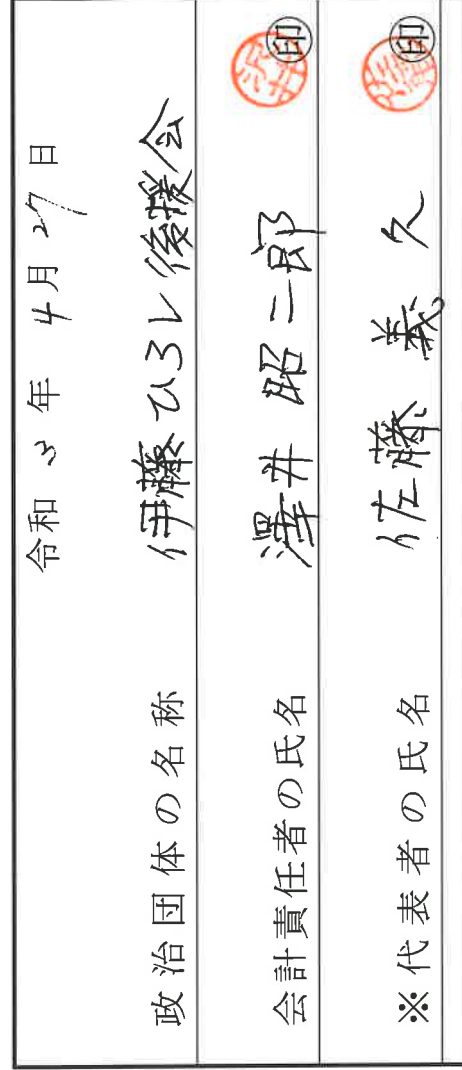 令和3年 4月27日
政治団体の名称 伊藤ひろし後援会
会計責任者の氏名 澤井 昭二郎 印
※代表者の氏名 佐藤 義久 印